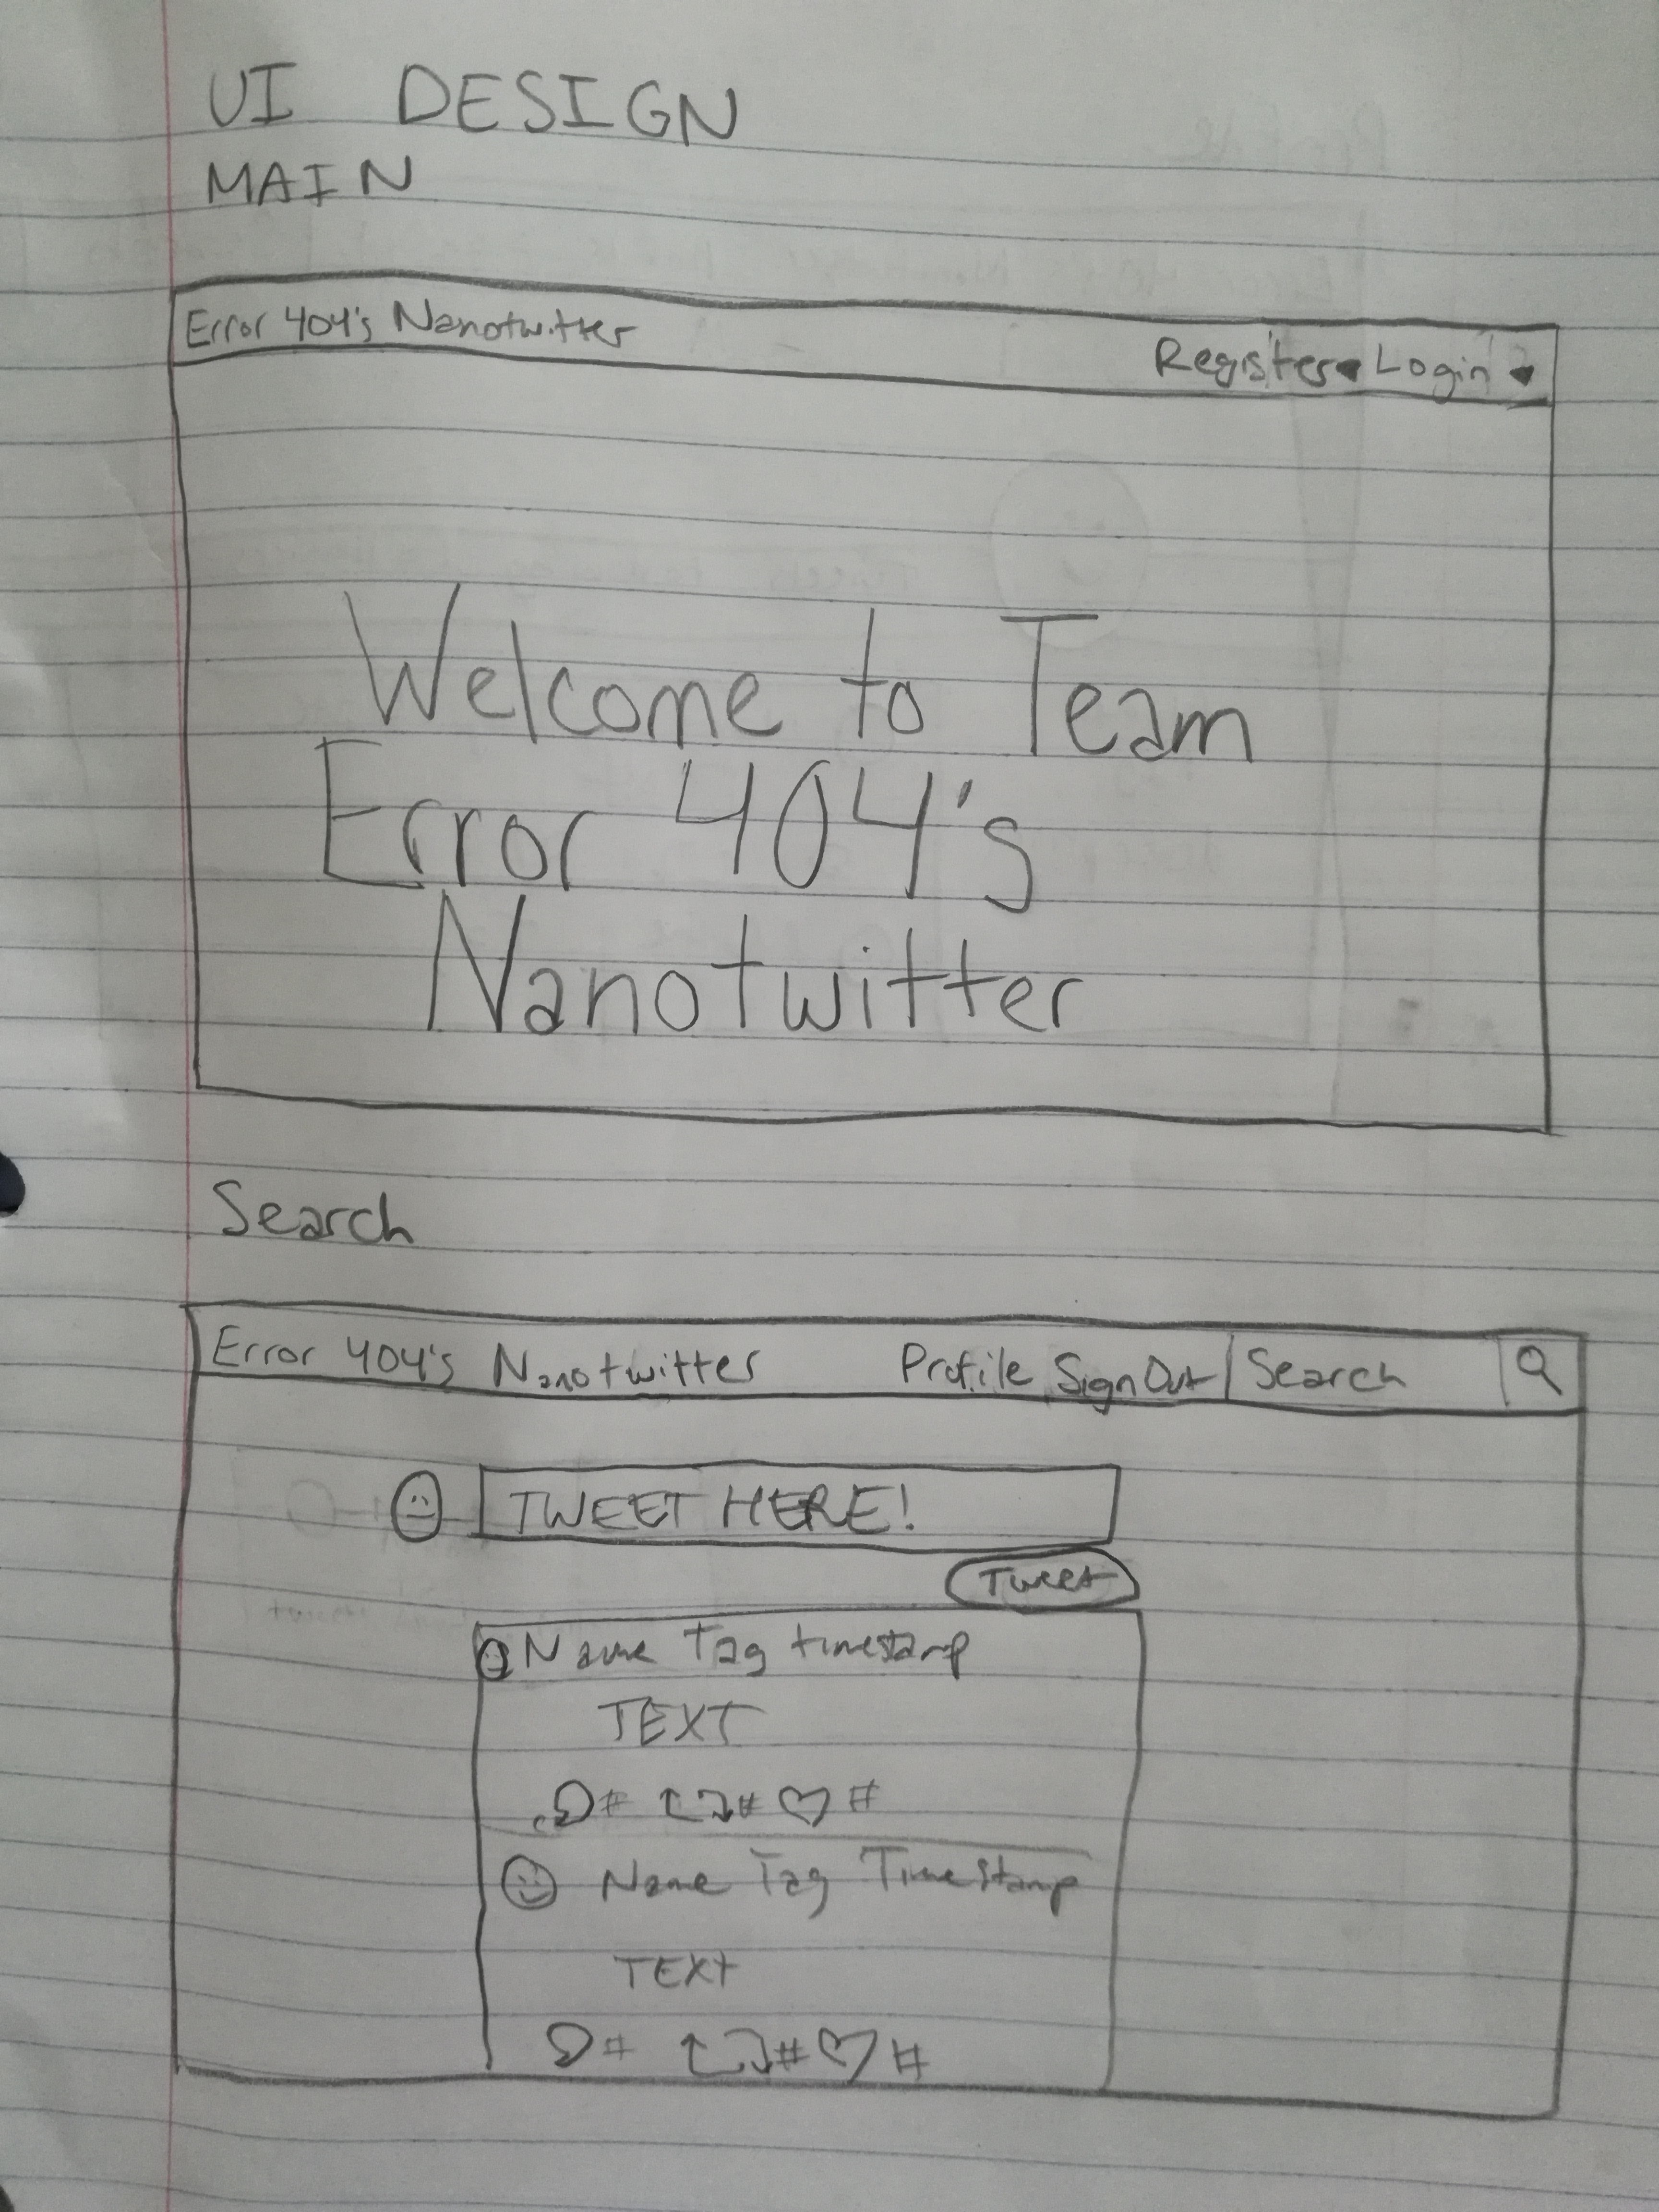 UI DESIGN
MAIN
Error 404's Nanotwitter Register Login
Welcome to Team
Error 404's
Nanotwitter
Search
Error 404's Nanotwitter Profile Sign Out Search
TWEET HERE!
Tweet
Name Tag timestamp
TEXT
# # #
Name Tag Timestamp
TEXT
# # #